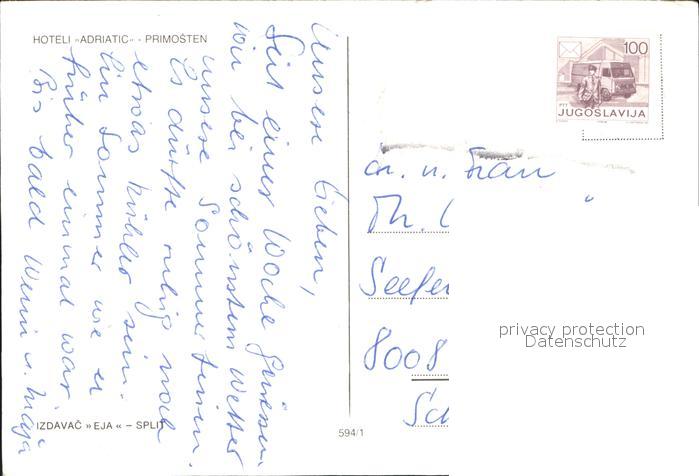 HOTELI »ADRIATIC« - PRIMOŠTEN
Unsere Lieben,
Seit einer Woche geniessen
wir bei schönstem Wetter
unsere Sommerferien.
Es dürfte ruhig noch
etwas kühler sein.
Ein Sommer wie er
früher einmal war
Bis bald Werni u. Maja
IZDAVAČ »EJA« – SPLIT
594/1
100
PTT
JUGOSLAVIJA
u. Frau
Th.
Seefe
8008
Sch
privacy protection
Datenschutz